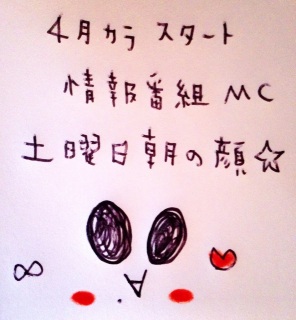 4月カラ スタート
情報番組 MC
土曜日朝の顔☆